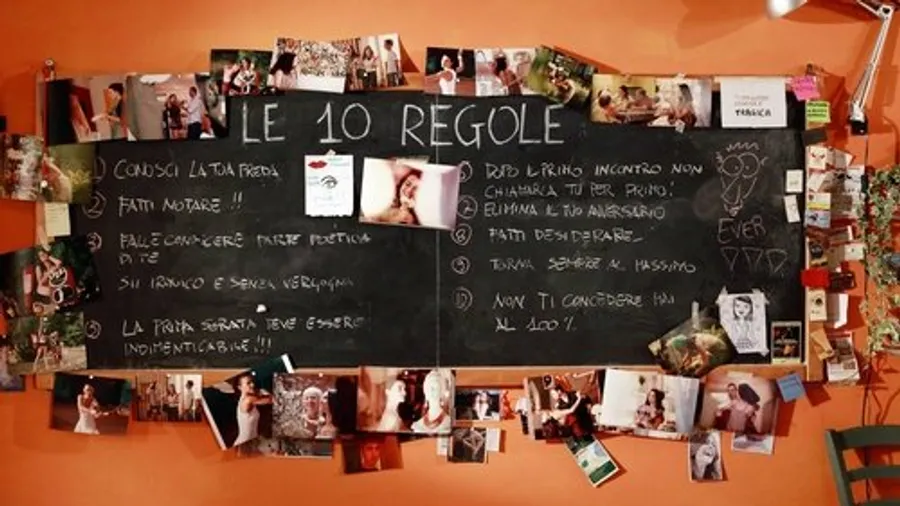 LE 10 REGOLE
1 CONOSCI LA TUA PREDA
2 FATTI NOTARE !!
3 FALLE CONOSCERE PARTE POETICA
DI TE
SII IRONICO E SENZA VERGOGNA
5 LA PRIMA SERATA DEVE ESSERE
INDIMENTICABILE!!!
6 DOPO IL PRIMO INCONTRO NON
CHIAMARLA TU PER PRIMO!
7 ELIMINA IL TUO AVVERSARIO
8 FATTI DESIDERARE...
9 TORNA SEMPRE AL MASSIMO
10 NON TI CONCEDERE MAI
AL 100%
EVER
TRAGICA